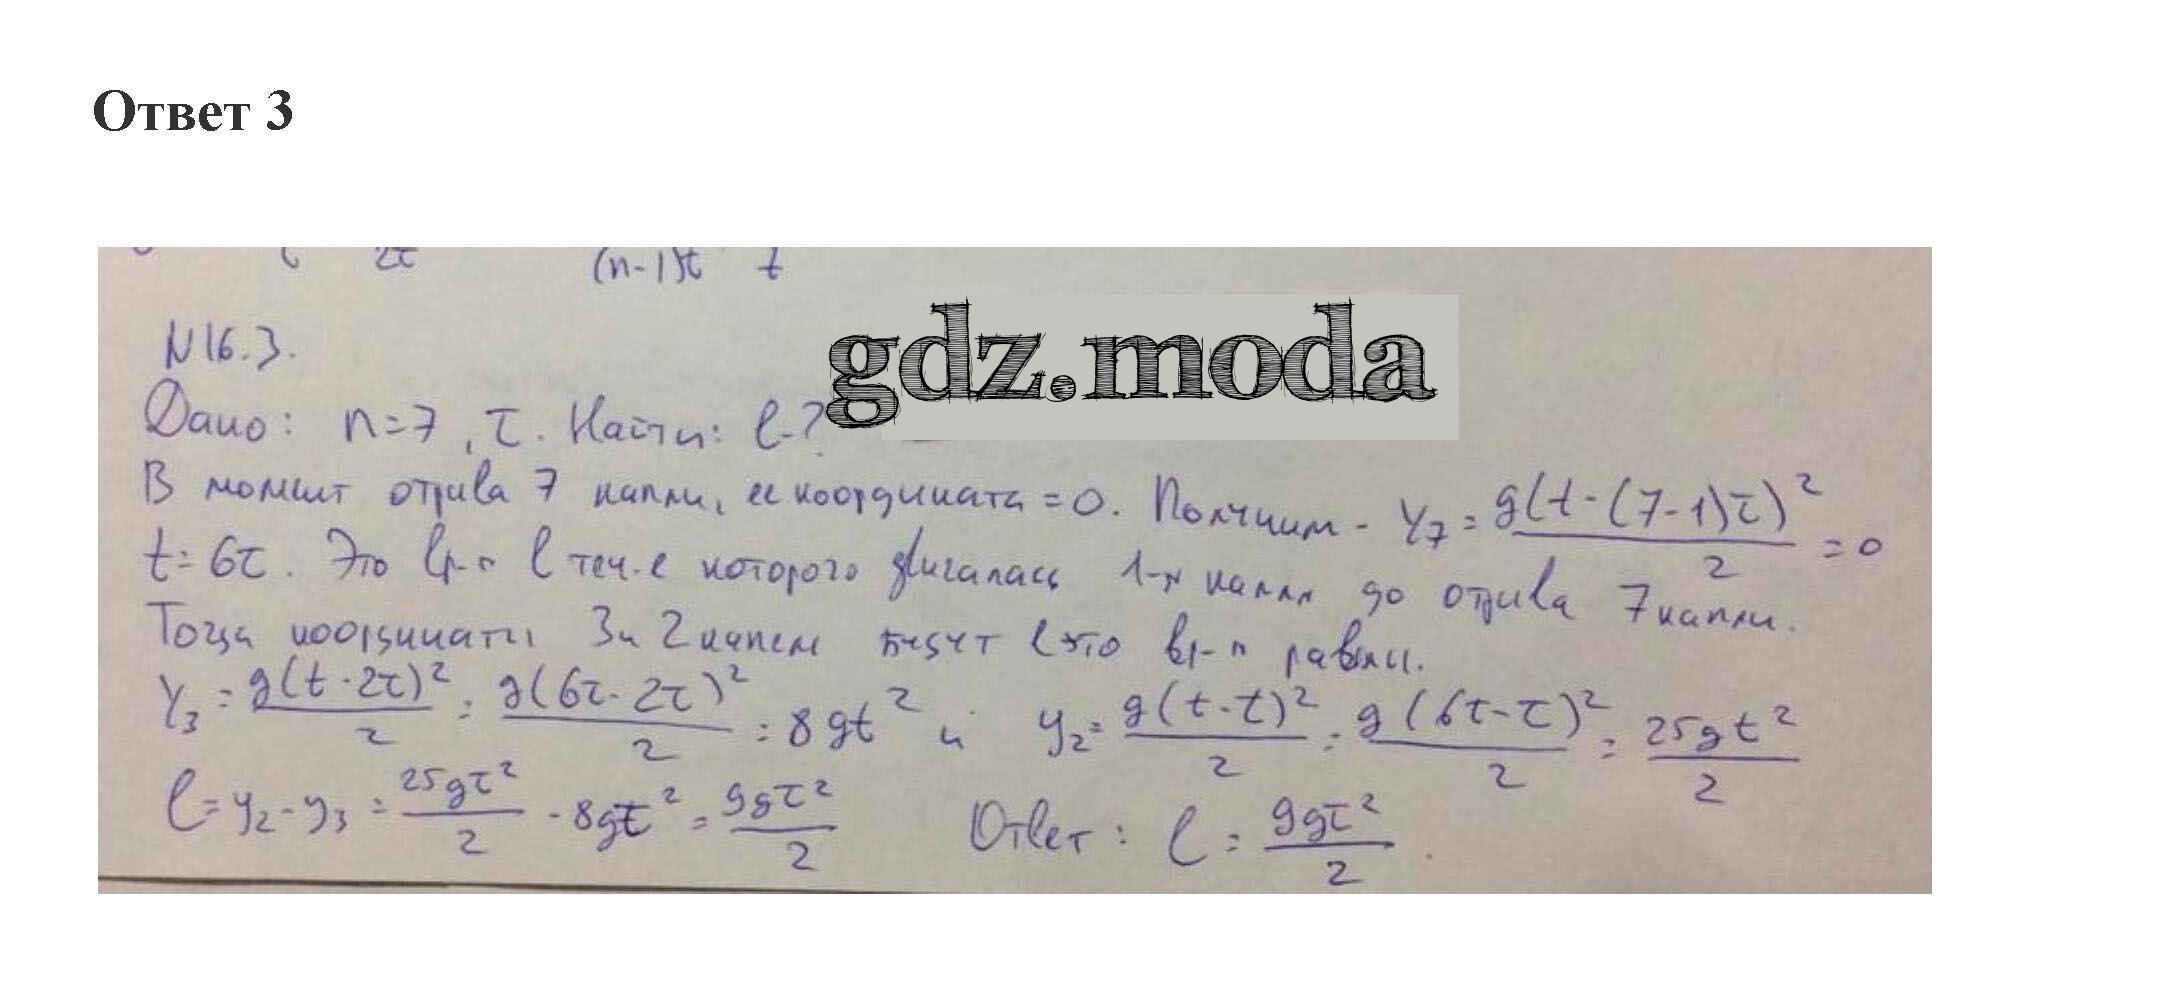 Ответ 3
(n-1)τ t
gdz.moda
N 16.3.
Дано: n=7, τ. Найти: l-?
В момент отрыва 7 капли, ее координата = 0. Получим - Y₇ = g(t-(7-1)τ)²/2 = 0
t = 6τ. Это вр-я в теч-е которого двигалась 1-я капля до отрыва 7 капли.
Тогда координаты 3 и 2 капель будут в это вр-я равны.
Y₃ = g(t-2τ)²/2 = g(6τ-2τ)²/2 = 8gτ² и y₂ = g(t-τ)²/2 = g(6τ-τ)²/2 = 25gτ²/2
l = y₂ - y₃ = 25gτ²/2 - 8gτ² = 9gτ²/2 Ответ: l = 9gτ²/2.